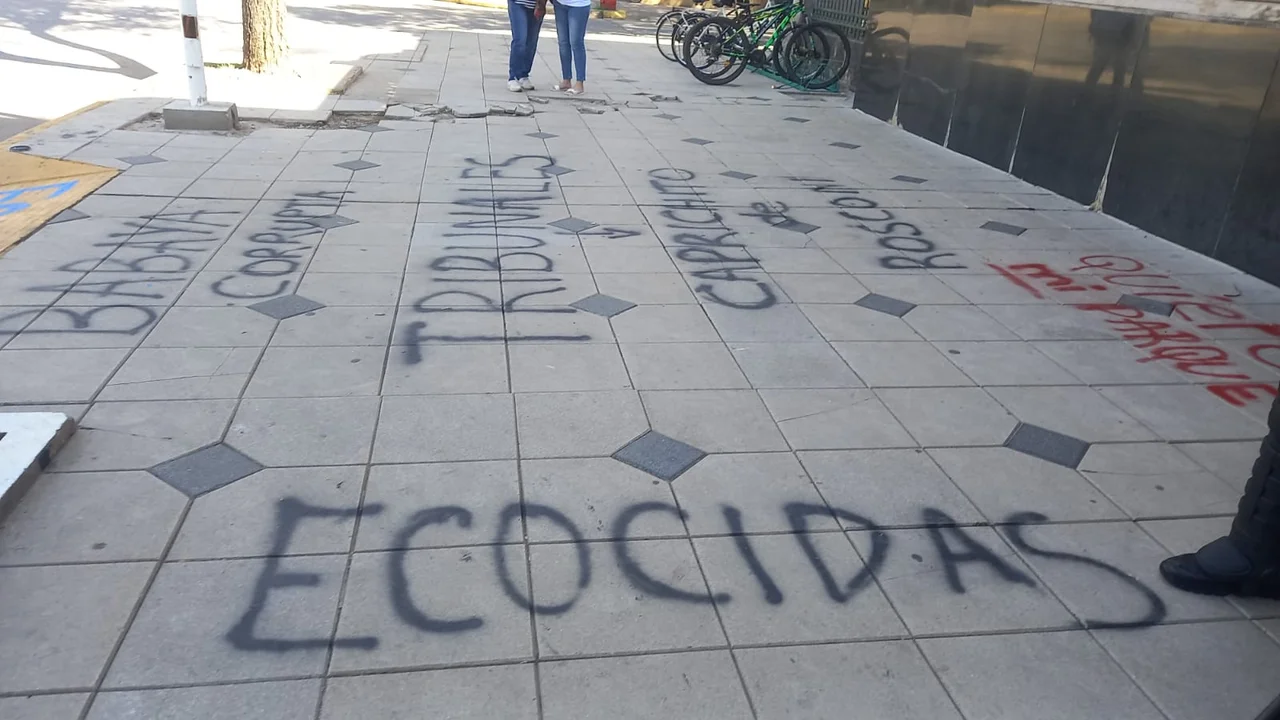 CORRUPTA
TRIBUNALES
CAPRICHITO
de
ROSCONI
QUIERO
mi PARQUE
ECOCIDAS